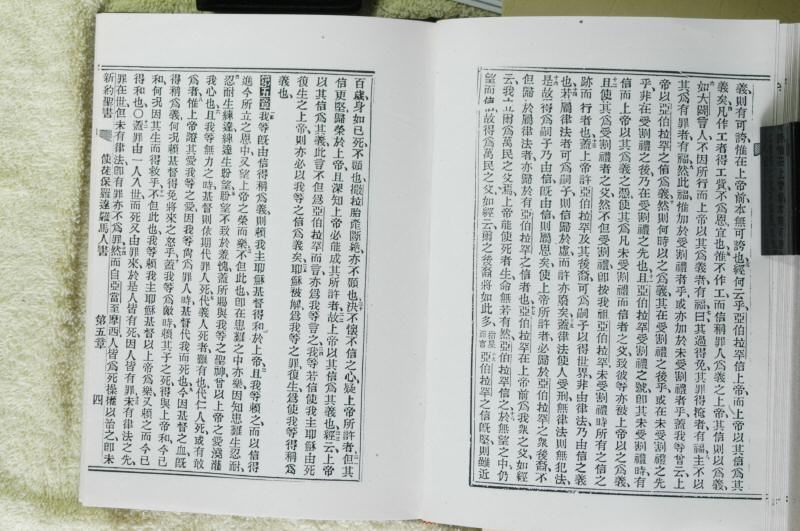 義、則有可誇、惟在上帝前、本無可誇也、經何云乎、亞伯拉罕信上帝、而上帝以其信爲其
義矣、凡作工者得工資、不爲恩、宜也、惟不作工、而信稱罪人爲義之上帝、其信則以爲義、
如大闢言、人不因所行、而上帝以其爲義者有福、曰、其過得免、其罪得掩者有福、主不以
其爲有罪者有福、然此福惟加於受割禮者乎、或亦加於未受割禮者乎、蓋我等曾云、上
帝以亞伯拉罕之信爲義、然則何時以之爲義、其在受割禮之後乎、或在未受割禮之先
乎、非在受割禮之後、乃在受割禮之先也、且亞伯拉罕受割禮之號、卽其未受割禮時、有
信而上帝以其爲義之憑、使其爲凡未受割禮而信者之父、致彼等亦被上帝以之爲義、
且使其爲受割禮者之父、然不但受割禮、卽按我祖亞伯拉罕未受割禮時所有之信之
跡而行者也、蓋上帝許亞伯拉罕、及其後裔、可爲嗣子以得世界、非由律法、乃由信之義
也、若屬律法者、可爲嗣子、則信歸於虛、而許亦廢矣、蓋律法使人受刑、無律法則無犯法、
是故得爲嗣子、乃由信、旣由信則屬恩矣、使上帝所許者、必歸於亞伯拉罕之衆後裔、不
但歸於屬律法者、亦歸於有亞伯拉罕之信者、亞伯拉罕在上帝前、爲我衆之父、如經
云、我立爾爲萬民之父焉、上帝能使死者生、命無若有、然亞伯拉罕信之、於無望之中、仍
望而信、故得爲萬民之父、如經云、爾之後裔將如此多、指星而言亞伯拉罕之信旣堅、則雖近
百歲、身如已死、不顧也、撒拉胎產斷絕、亦不顧也、決不懷不信之心、疑上帝所許者、但其
信更堅、歸榮於上帝、且深知上帝必能成其所許者、故上帝以其信爲其義也、經云、上帝
以其信爲其義、此言不但爲亞伯拉罕而言、亦爲我等言之、我等若信使我主耶穌由死
復生之上帝、則亦必以我等之信爲義矣、耶穌被解、爲我等之罪、復生爲使我等得稱爲
義也、
第五章 我等旣由信得稱爲義、則賴我主耶穌基督得和於上帝、且我等賴之、而以信得
進今所立之恩中、又望上帝之榮而樂、不但此也、卽在患難之中亦樂、因知患難生忍耐、
忍耐生練達、練達生盼望、盼望不致於羞愧、蓋所賜與我等之聖神、曾以上帝之愛澆灌
我心也、且我等無力之時、基督則依期代罪人死、代義人死者難有也、代仁人死、或有敢
爲者、惟上帝證其愛我等之愛、因我等尙爲罪人時、基督代我而死也、今因基督之血、旣
得稱爲義、何況賴基督得免將來之怒乎、蓋我等爲敵時、賴其子之死、得與上帝和、今已
和、何況因其生而得救乎、不但此也、我等賴我主耶穌基督、以上帝爲樂、又賴之而今已
得和也、○蓋罪由一人入世、而死又由罪來、於是人皆有死、因人皆有罪、未有律法之先、
罪在世、但未有律法、卽有罪、亦不爲罪、然而自亞當至摩西、人皆爲死操權以治之、卽未
新約聖書 使徒保羅達羅馬人書 第五章 四